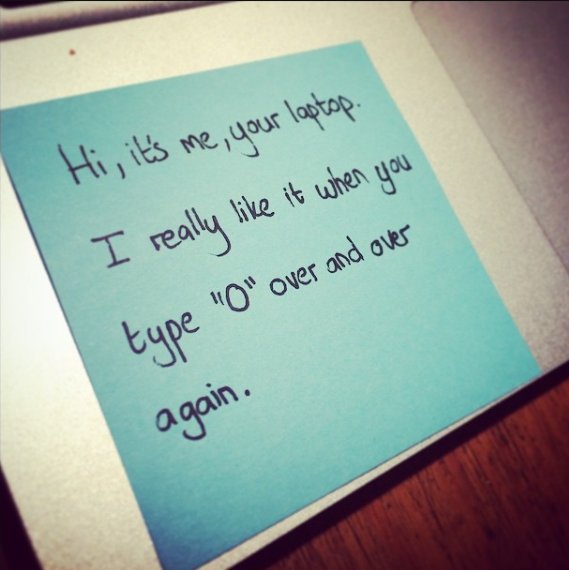 Hi, it's me, your laptop.
I really like it when you
type "O" over and over
again.